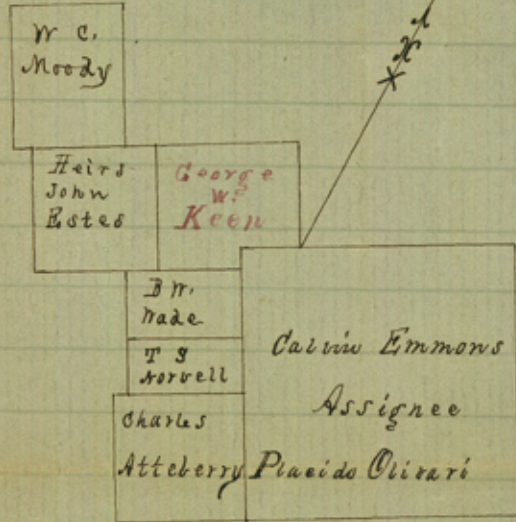 W C.
Moody
N
Heirs
John
Estes
George
W.
Keen
B W.
Wade
T S
Norvell
Charles
Atteberry
Calvin Emmons
Assignee
Placido Olivari